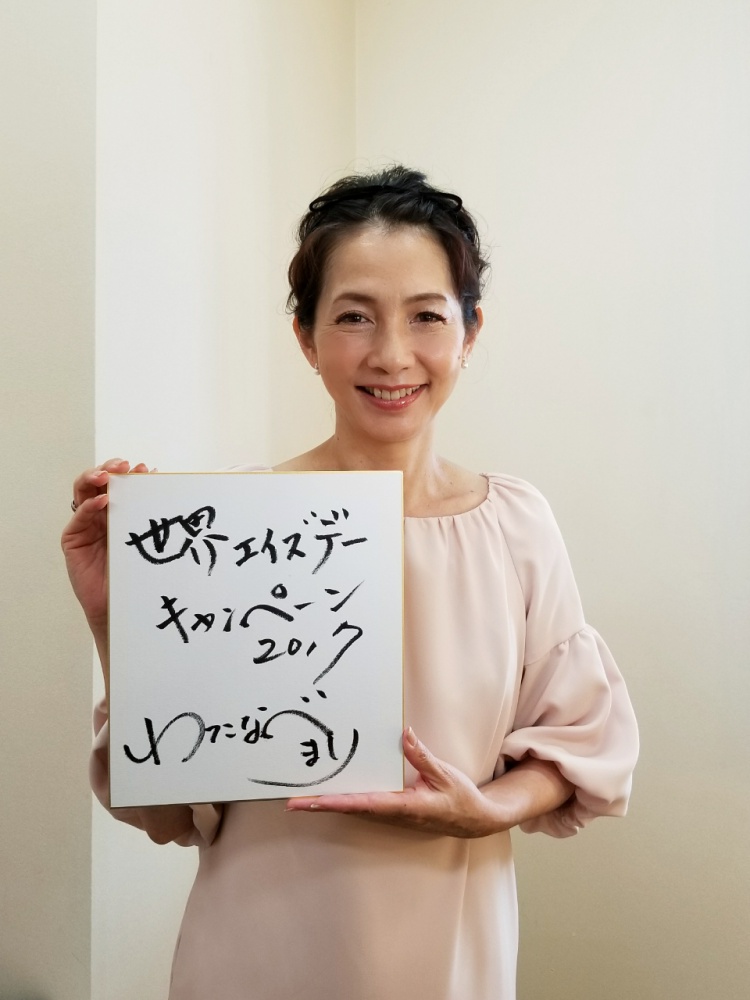 世界エイズデー
キャンペーン
2017
わたなべ
まり